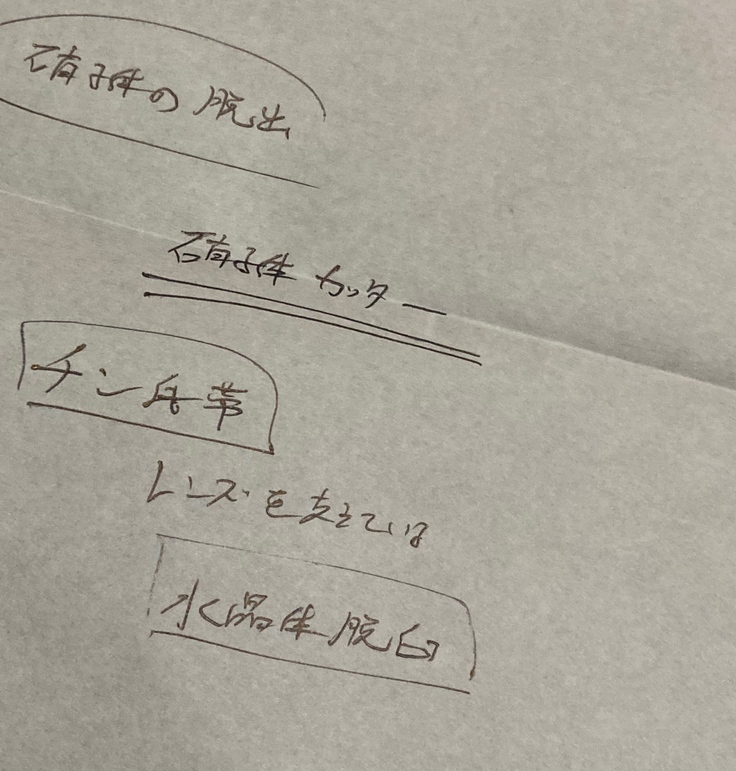 硝子体の脱出
硝子体カッター
チン氏帯
レンズを支えている
水晶体脱臼